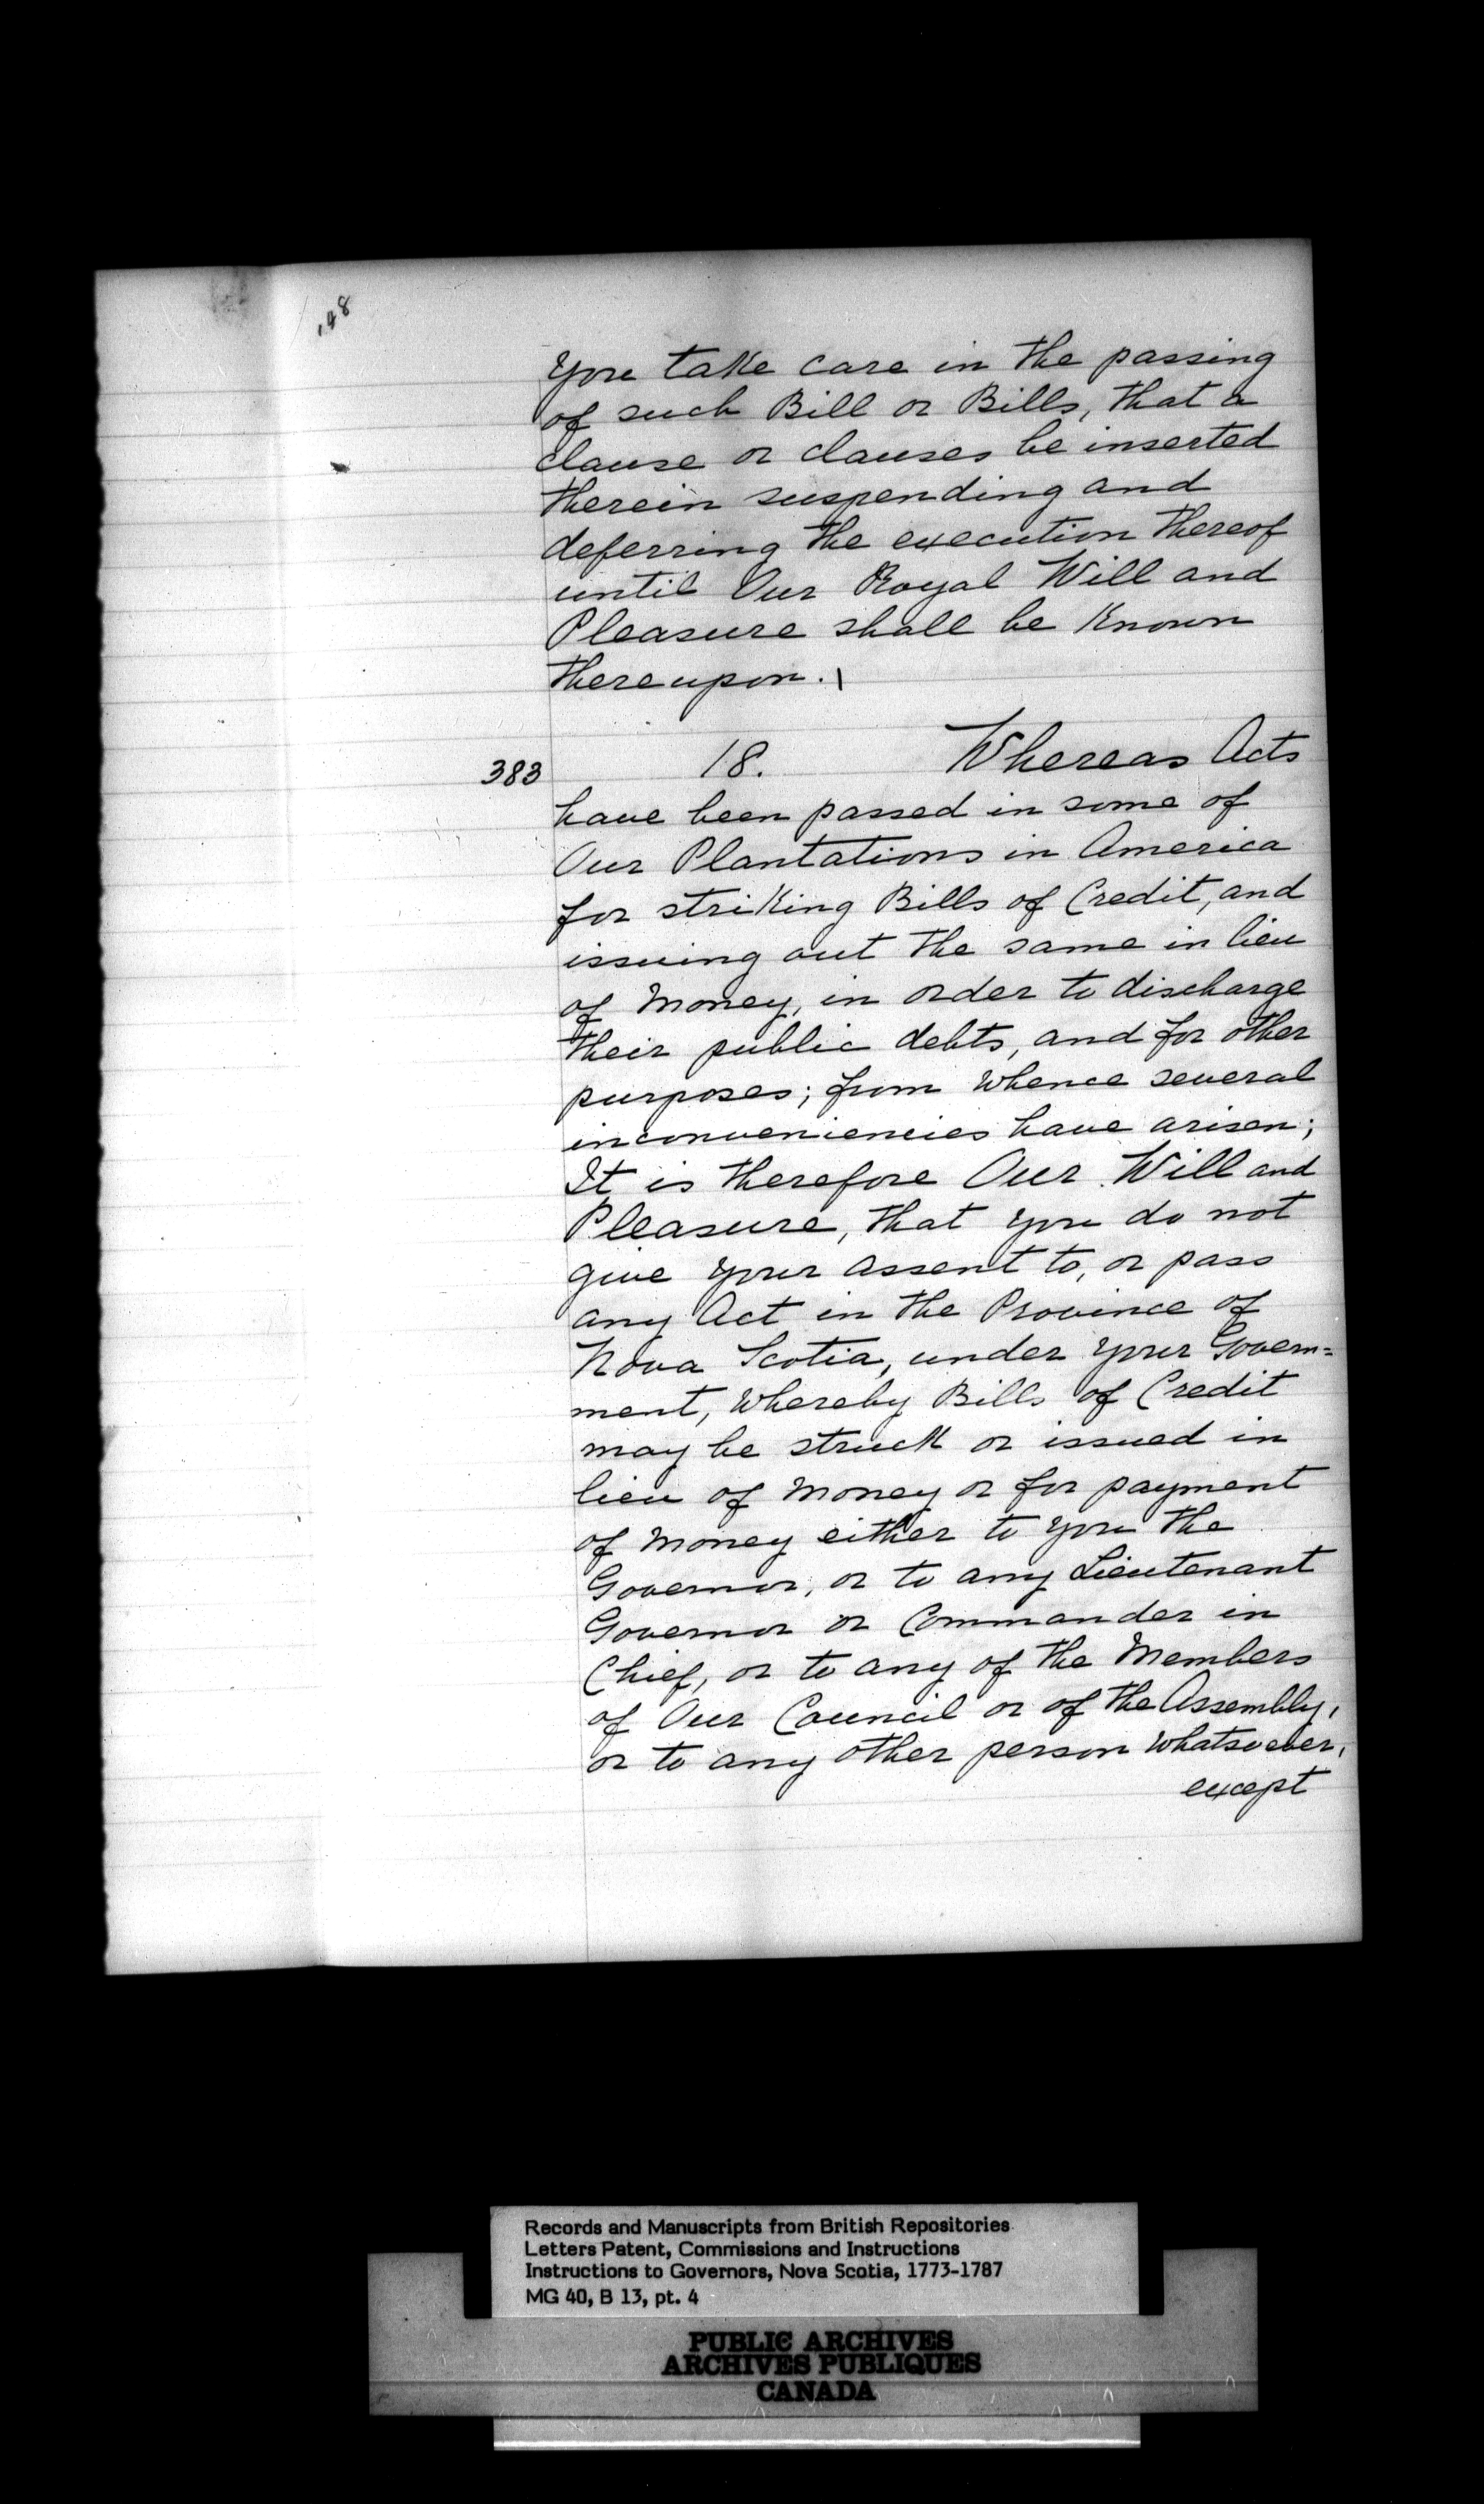 148
you take care in the passing
of such Bill or Bills, that a
clause or clauses be inserted
therein suspending and
deferring the execution thereof
until Our Royal Will and
Pleasure shall be known
thereupon.
383 18. Whereas Acts
have been passed in some of
Our Plantations in America
for striking Bills of Credit, and
issuing out the same in lieu
of Money, in order to discharge
their public debts, and for other
purposes; from whence several
inconveniencies have arisen;
It is therefore Our Will and
Pleasure, that you do not
give your assent to, or pass
any Act in the Province of
Nova Scotia, under your Govern=
ment, whereby Bills of Credit
may be struck or issued in
lieu of Money or for payment
of Money either to you the
Governor, or to any Lieutenant
Governor or Commander in
Chief, or to any of the Members
of Our Council or of the Assembly,
or to any other person whatsoever,
except
Records and Manuscripts from British Repositories
Letters Patent, Commissions and Instructions
Instructions to Governors, Nova Scotia, 1773-1787
MG 40, B 13, pt. 4
PUBLIC ARCHIVES
ARCHIVES PUBLIQUES
CANADA